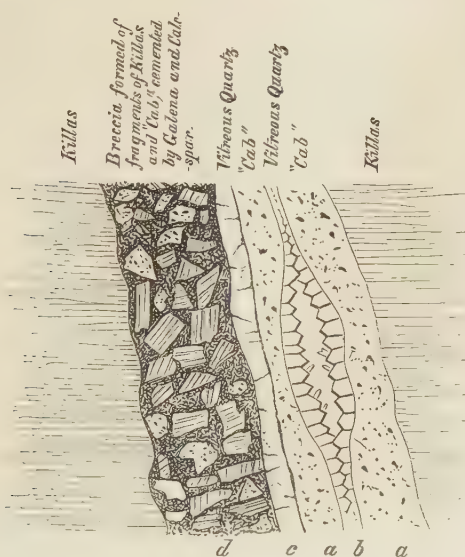 Killas
Breccia formed of
fragments of Killas
and "Cab," cemented
by Galena and Calc-
-spar.
Vitreous Quartz
"Cab"
Vitreous Quartz
"Cab"
Killas
d c a b a